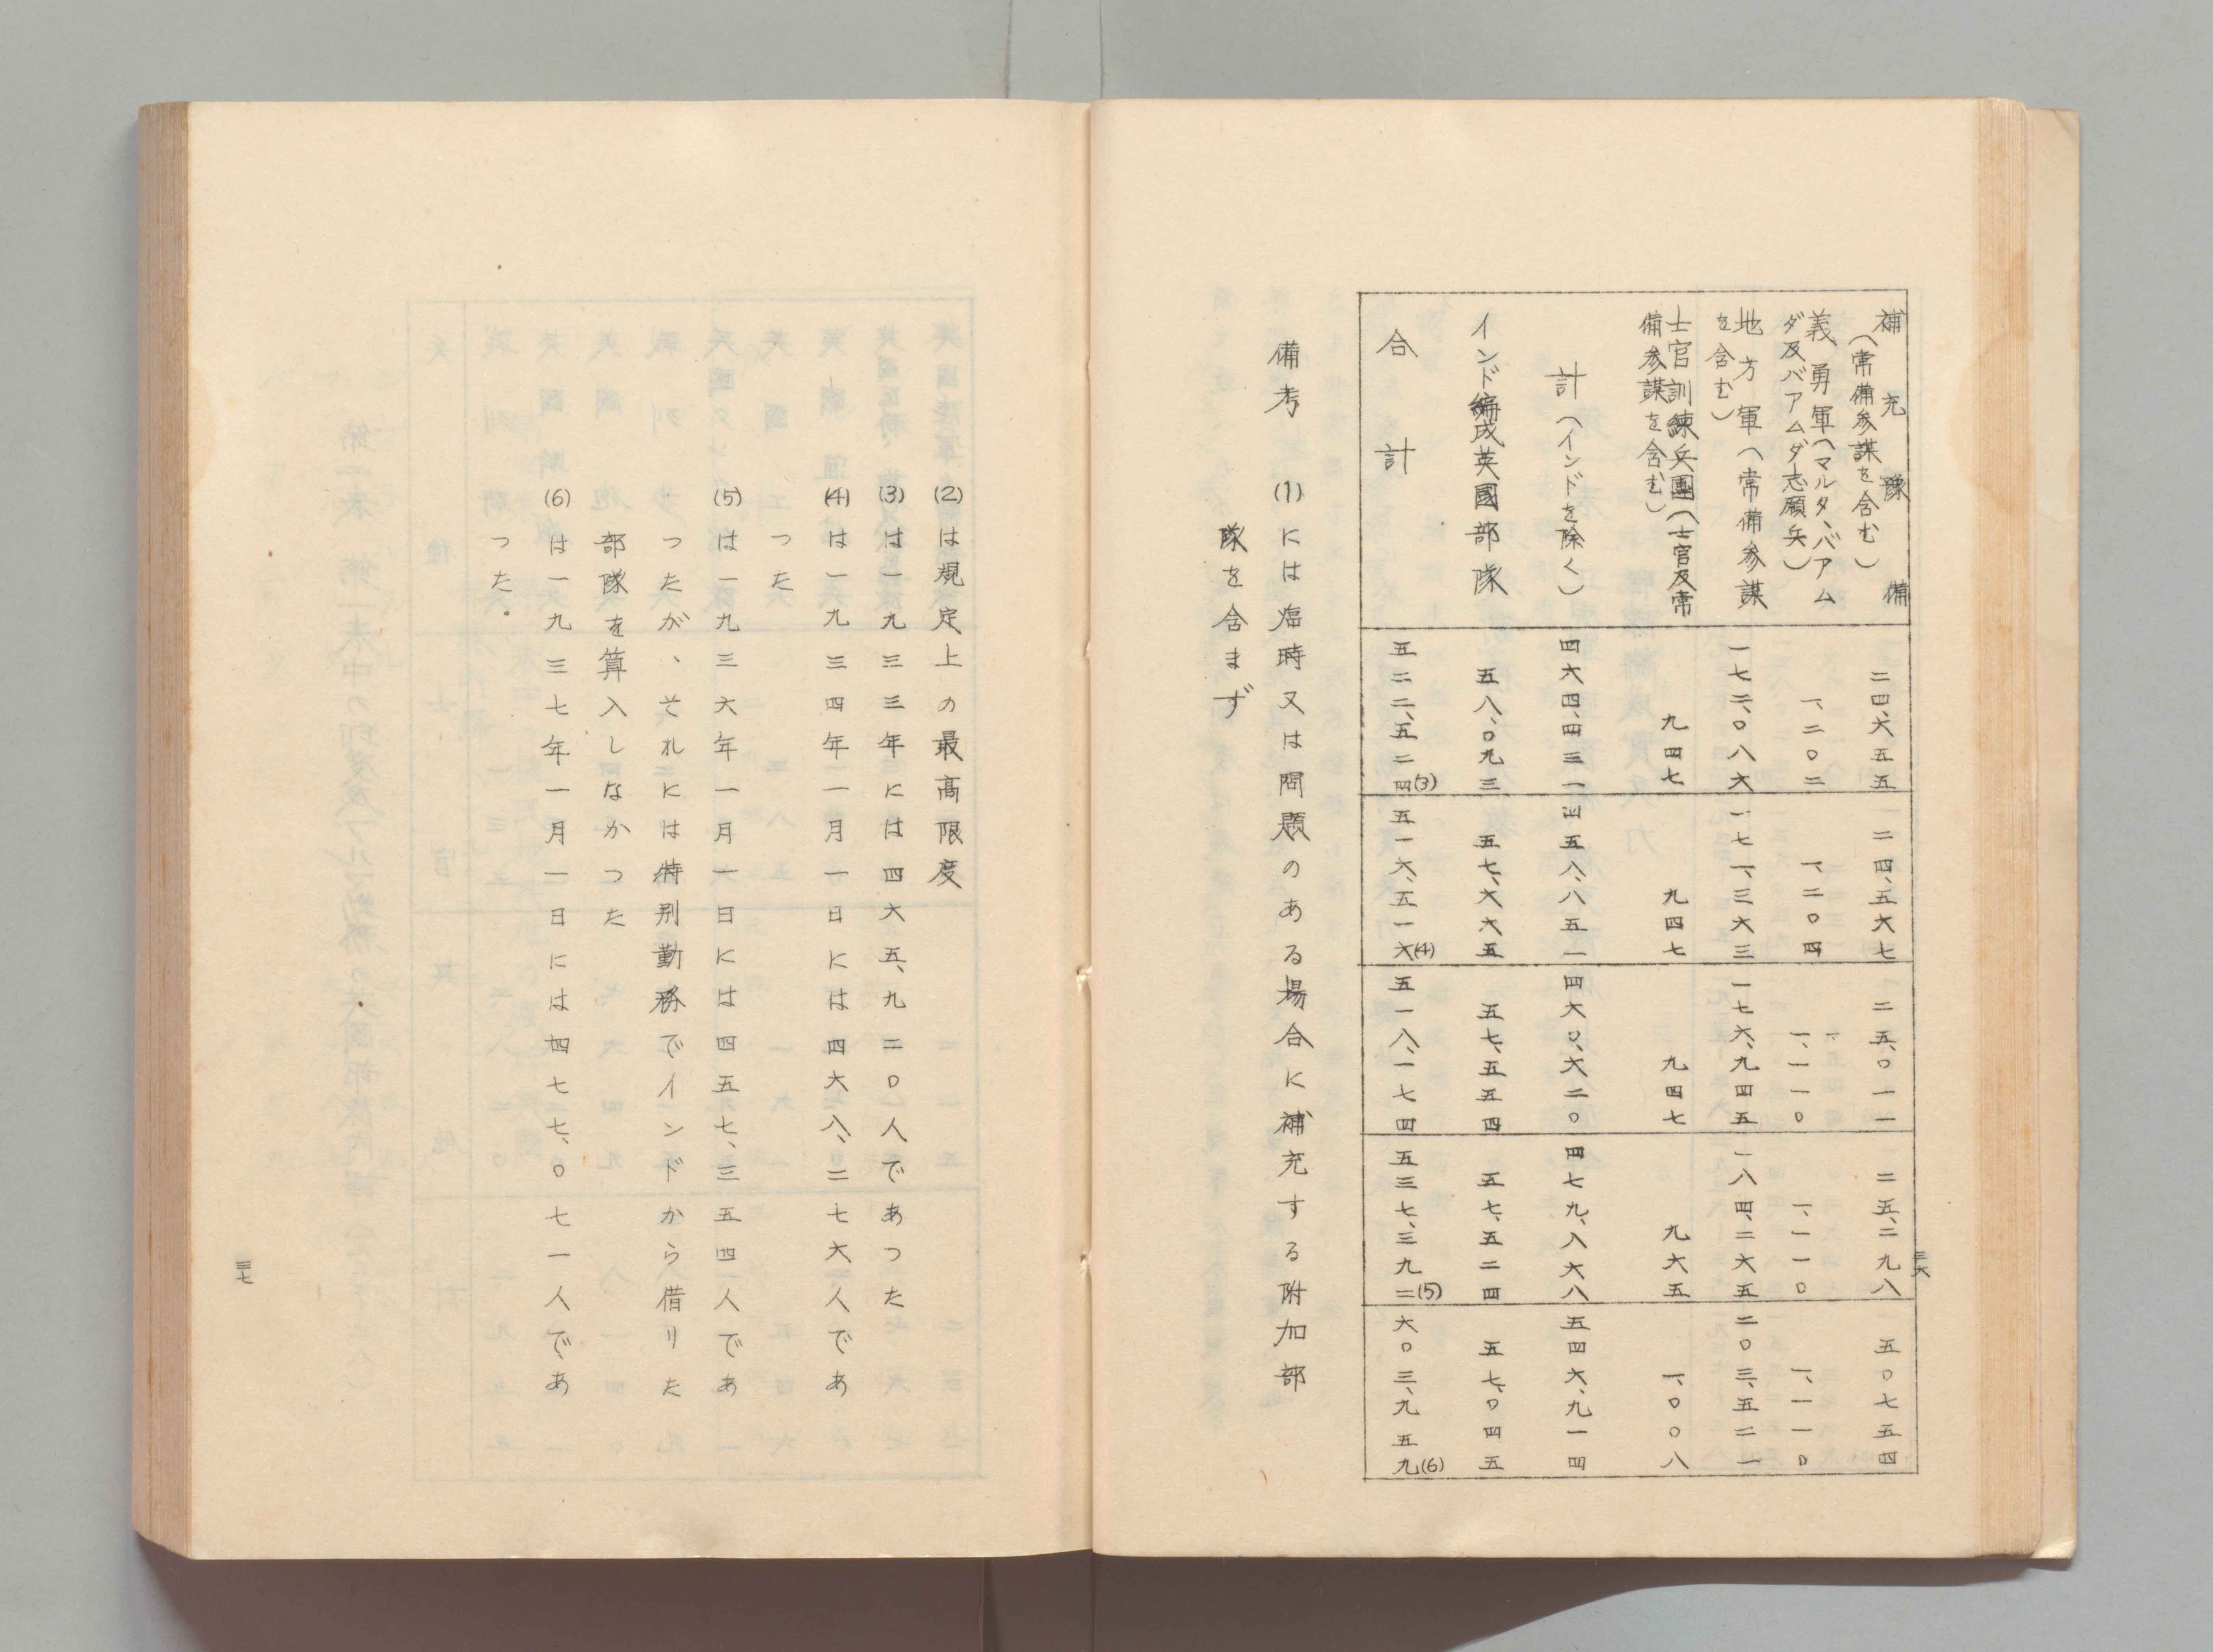 三六
補充豫備
(常備参謀を含む)
二四、六五五
二四、五六七
二五、〇一一
二五、二九八
五〇七五四
義勇軍(マルタ、バアム
ダ及バアムダ志願兵)
一、二〇二
一、二〇四
一、一一〇
一、一一〇
一、一一〇
地方軍(常備参謀
を含む)
一七二、〇八六
一七一、三六三
一七六、九四五
一八四、二六五
二〇三、五二一
士官訓練兵團(士官及常
備参謀を含む)
九四七
九四七
九四七
九六五
一、〇〇八
計(インドを除く)
四六四、四三一
四五八、八五一
四六〇、六二〇
四七九、八六八
五四六、九一四
インド編成英國部隊
五八、〇九三
五七、六六五
五七、五五四
五七、五二四
五七、〇四五
合計
五二二、五二四(3)
五一六、五一六(4)
五一八、一七四
五三七、三九二(5)
六〇三、九五九(6)
備考 (1)には臨時又は問題のある場合に補充する附加部
隊を含まず
(2)は規定上の最高限度
(3)は一九三三年には四六五、九二〇人であつた
(4)は一九三四年一月一日には四六八、二七六人であ
つた
(5)は一九三六年一月一日には四五七、三五四人であ
つたが、それには特別勤務でインドから借りた
部隊を算入しなかつた
(6)は一九三七年一月一日には四七七、〇七一人であ
つた。
三七